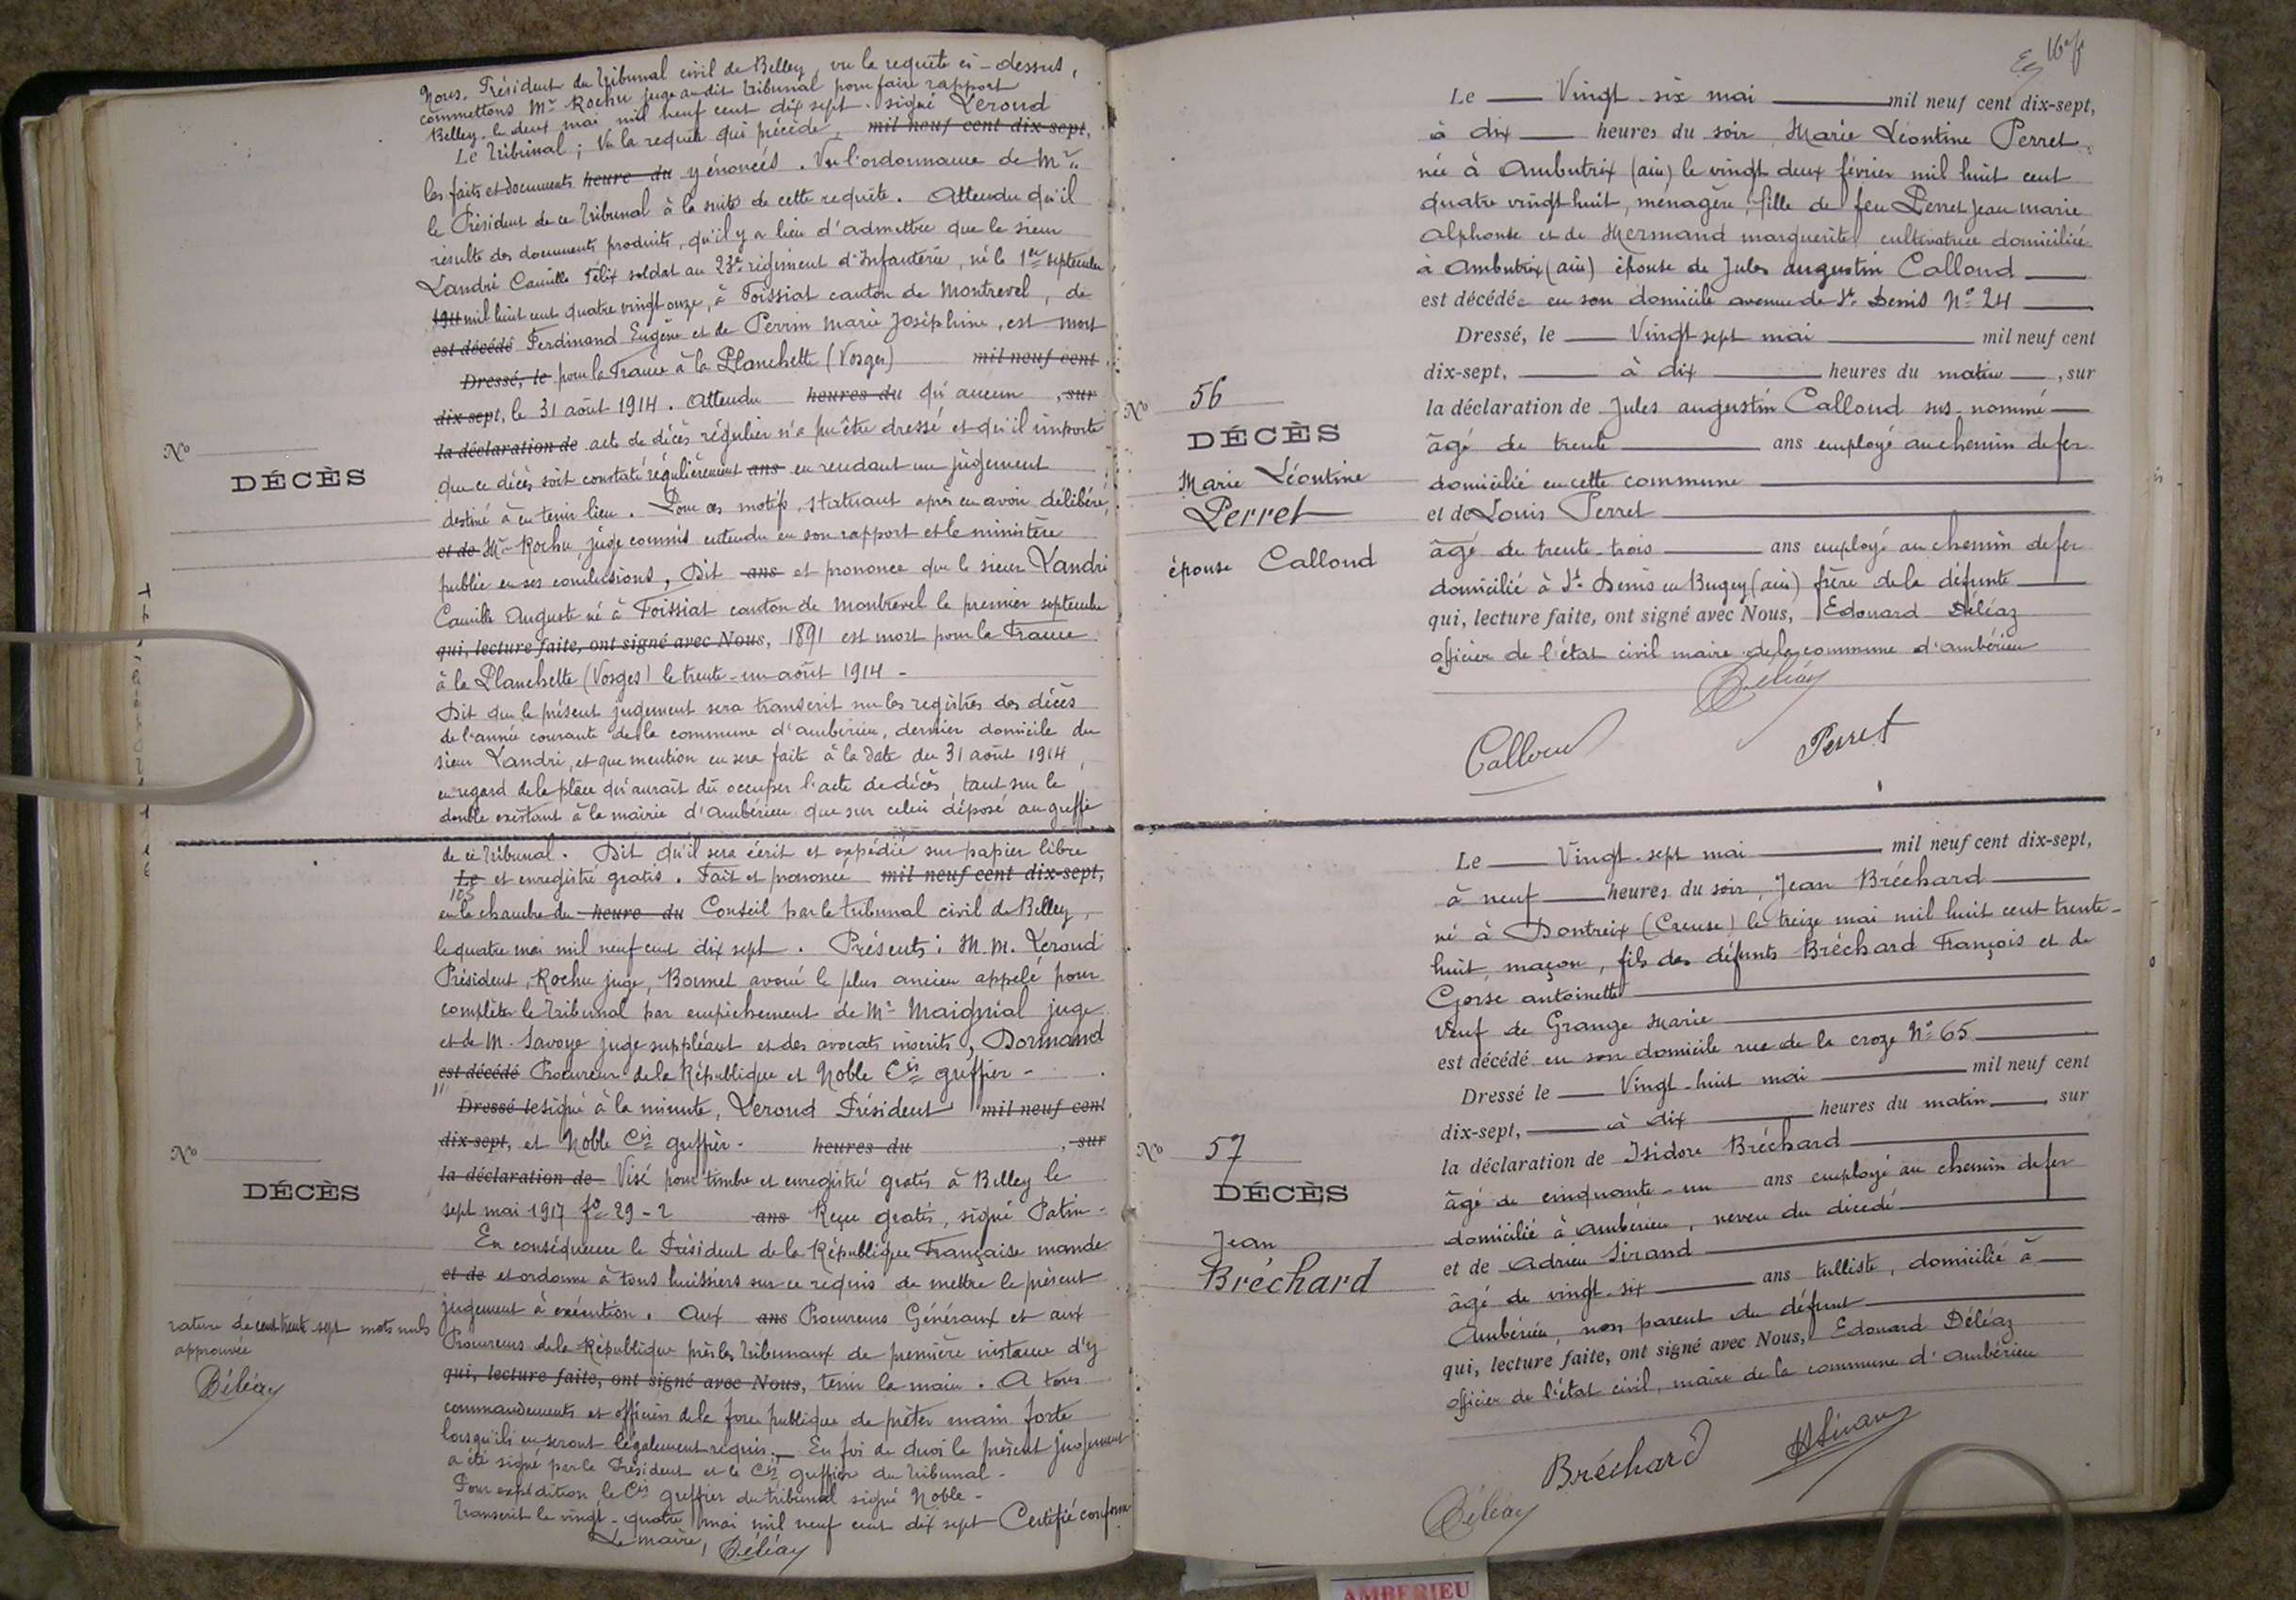 Nous, Président du Tribunal civil de Belley, vu la requête ci-dessus,
commettons Mr Rochu juge audit tribunal pour faire rapport
Belley, le deux mai mil neuf cent dix sept. signé Leroud
Le Tribunal; Vu la requête qui précède, mil neuf cent dix-sept,
les faits et documents heure du y énoncés. Vu l'ordonnance de Mr
le Président de ce Tribunal à la suite de cette requête. Attendu qu'il
résulte des documents produits, qu'il y a lieu d'admettre que le sieur
Landri Camille Félix soldat au 23e régiment d'Infanterie, né le 1er septembre
mil huit cent quatre vingt onze, à Foissiat canton de Montrevel, de
est décédé Ferdinand Eugène et de Perrin Marie Joséphine, est mort
Dressé, le pour la France à la Planchette (Vosges) mil neuf cent
dix-sept, le 31 août 1914. Attendu heures du qu'aucun , sur
la déclaration de acte de décès régulier n'a pu être dressé et qu'il importe
que ce décès soit constaté régulièrement ans en rendant un jugement
destiné à en tenir lieu. Pour ces motifs, statuant après en avoir délibéré,
et de Mr Rochu, juge commis entendu en son rapport et le ministère
public en ses conclusions, Dit ans et prononce que le sieur Landri
Camille Auguste né à Foissiat canton de Montrevel le premier septembre
qui, lecture faite, ont signé avec Nous, 1891 est mort pour la France
à la Planchette (Vosges) le trente-un août 1914 -
Dit que le présent jugement sera transcrit sur les registres des décès
de l'année courante de la commune d'Ambérieu, dernier domicile du
sieur Landri, et que mention en sera faite à la date du 31 août 1914,
en regard de la place qu'aurait dû occuper l'acte de décès, tant sur le
double existant à la mairie d'Ambérieu que sur celui déposé au greffe
No
DÉCÈS
de ce Tribunal. Dit qu'il sera écrit et expédié sur papier libre
Le et enregistré gratis. Fait et prononcé mil neuf cent dix-sept,
en la chambre du heure du Conseil par le tribunal civil de Belley,
le quatre mai mil neuf cent dix sept. Présents: M.M. Leroud
Président, Rochu juge, Bonnet avoué le plus ancien appelé pour
compléter le Tribunal par empêchement de Mr Maignial juge
et de M. Savoye juge suppléant et des avocats inscrits, Dormand
est décédé Procureur de la République et Noble Cis greffier -
Dressé le signé à la minute, Leroud Président mil neuf cent
dix-sept, et Noble Cis greffier - heures du , sur
la déclaration de Visé pour timbre et enregistré gratis à Belley le
sept mai 1917 fo 29-2 ans Reçu gratis, signé Patin -
En conséquence le Président de la République Française mande
et de et ordonne à tous huissiers sur ce requis de mettre le présent
jugement à exécution. Aux ans Procureurs Généraux et aux
Procureurs de la République près les Tribunaux de première instance d'y
qui, lecture faite, ont signé avec Nous, tenir la main. A tous
commandements et officiers de la force publique de prêter main forte
lorsqu'ils en seront légalement requis. — En foi de quoi le présent jugement
a été signé par le Président et le Cis greffier du Tribunal -
Pour expédition le Cis greffier du tribunal signé Noble -
Transcrit le vingt-quatre mai mil neuf cent dix sept Certifié conforme
Le maire, Déléaz
No
DÉCÈS
rature de cent trente sept mots nuls
approuvée
Déléaz
16e f
Le Vingt-six mai mil neuf cent dix-sept,
à dix heures du soir, Marie Léontine Perret
née à Ambutrix (ain) le vingt deux février mil huit cent
quatre vingt huit, ménagère, fille de feu Perret Jean marie
Alphonse et de Mermand marguerite, cultivatrice domiciliée
à Ambutrix (ain) épouse de Jules augustin Calloud
est décédée en son domicile avenue de St. Denis No 24
Dressé, le Vingt-sept mai mil neuf cent
dix-sept, à dix heures du matin , sur
la déclaration de Jules augustin Calloud sus-nommé
âgé de trente ans employé au chemin de fer
domicilié en cette commune
et de Louis Perret
âgé de trente-trois ans employé au chemin de fer
domicilié à St. Denis en Bugey (ain) frère de la défunte
qui, lecture faite, ont signé avec Nous, Edouard Déléaz
officier de l'état civil maire de la commune d'ambérieu
Déléaz
Calloud
Perret
No 56
DÉCÈS
Marie Léontine
Perret
épouse Calloud
Le Vingt-sept mai mil neuf cent dix-sept,
à neuf heures du soir, Jean Bréchard
né à Dontreix (Creuse) le treize mai mil huit cent trente-
huit, maçon, fils des défunts Bréchard François et de
Gorse antoinette
veuf de Grange Marie
est décédé en son domicile rue de la croze No 65
Dressé le Vingt-huit mai mil neuf cent
dix-sept, à dix heures du matin , sur
la déclaration de Isidore Bréchard
âgé de cinquante-un ans employé au chemin de fer
domicilié à Ambérieu, neveu du décédé
et de Adrien Sirand
âgé de vingt-six ans tulliste, domicilié à
Ambérieu, non parent du défunt
qui, lecture faite, ont signé avec Nous, Edouard Déléaz
officier de l'état civil, maire de la commune d'ambérieu
Bréchard
ASirand
Déléaz
No 57
DÉCÈS
Jean
Bréchard
AMBERIEU